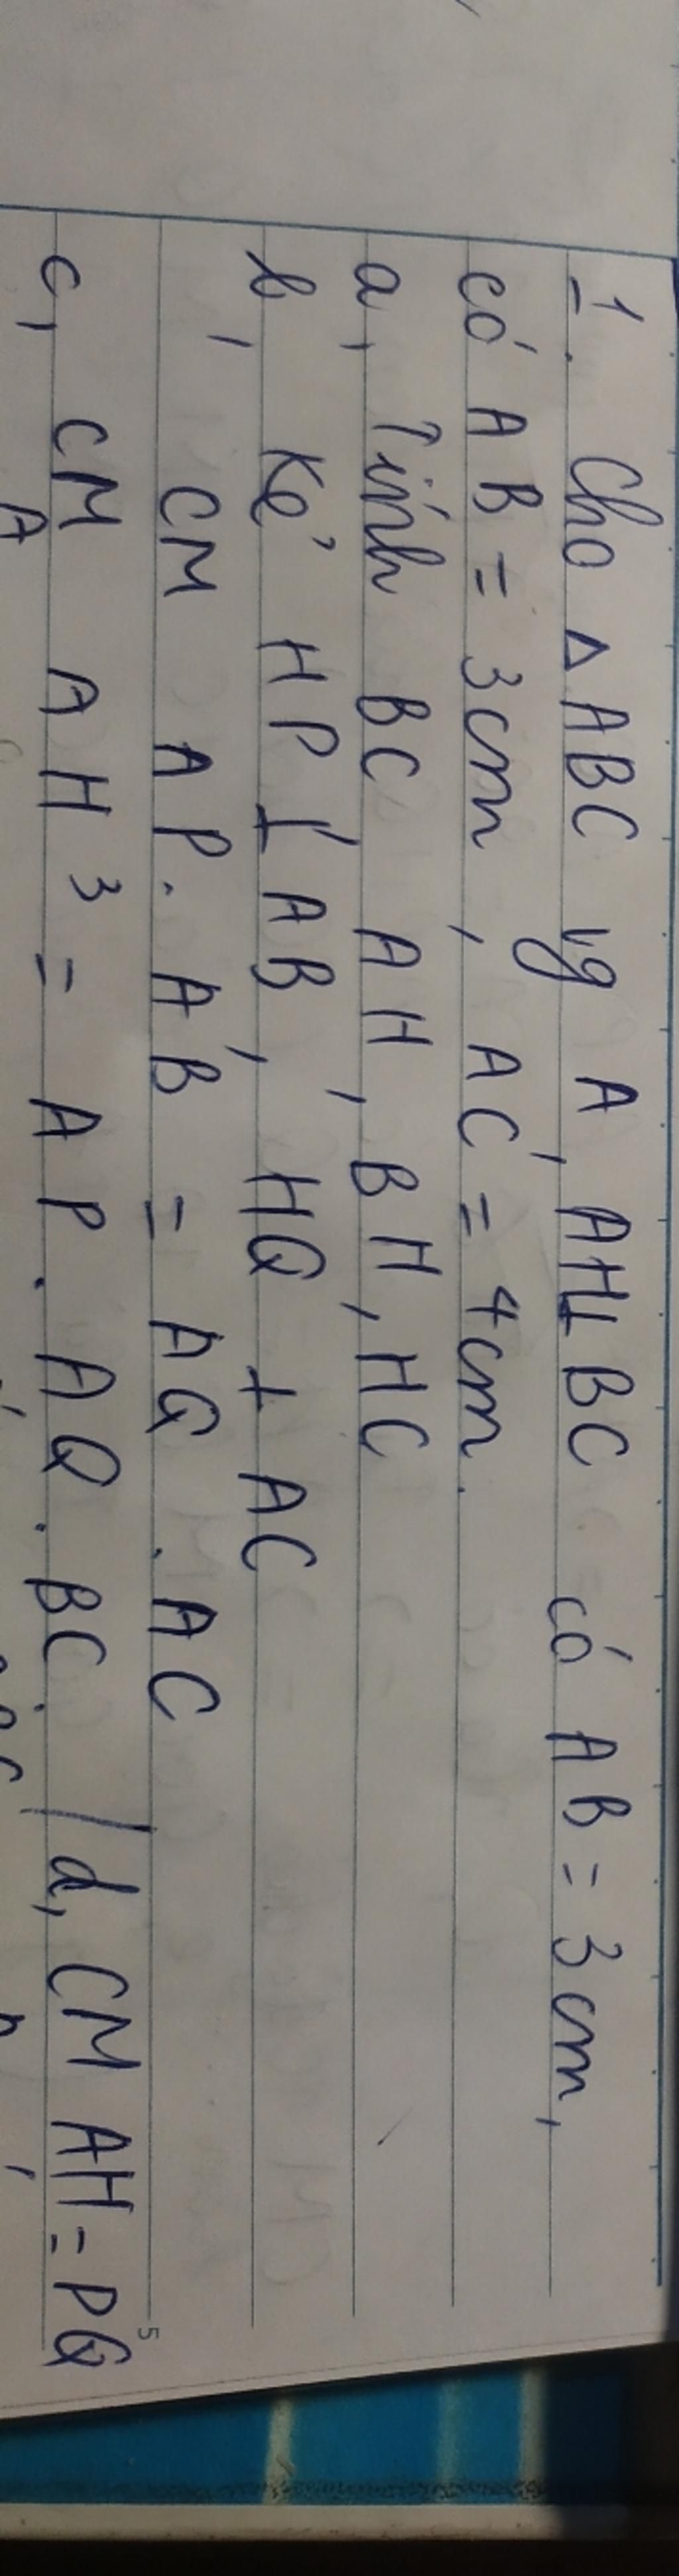 1. Cho △ABC vg A, AH⊥BC có AB = 3cm,
có AB = 3cm, AC = 4cm.
a, Tính BC AH, BH, HC
b, Kẻ HP ⊥ AB, HQ ⊥ AC
CM AP. AB = AQ. AC
c, CM AH³ = AP. AQ. BC. / d, CM AH = PQ
5
A